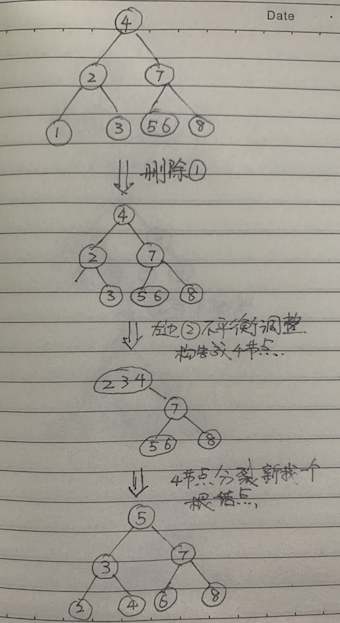 Date
4
2 7
1 3 5 6 8
删除①
4
2 7
3 5 6 8
左边②不平衡调整
构造成4节点.
2 3 4
7
5 6 8
4节点分裂新找个
根结点,
5
3 7
2 4 6 8